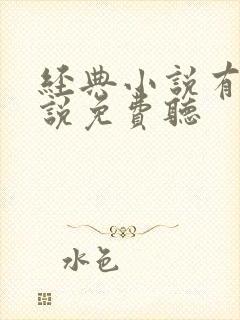 經典小說有
說免費聽
水色